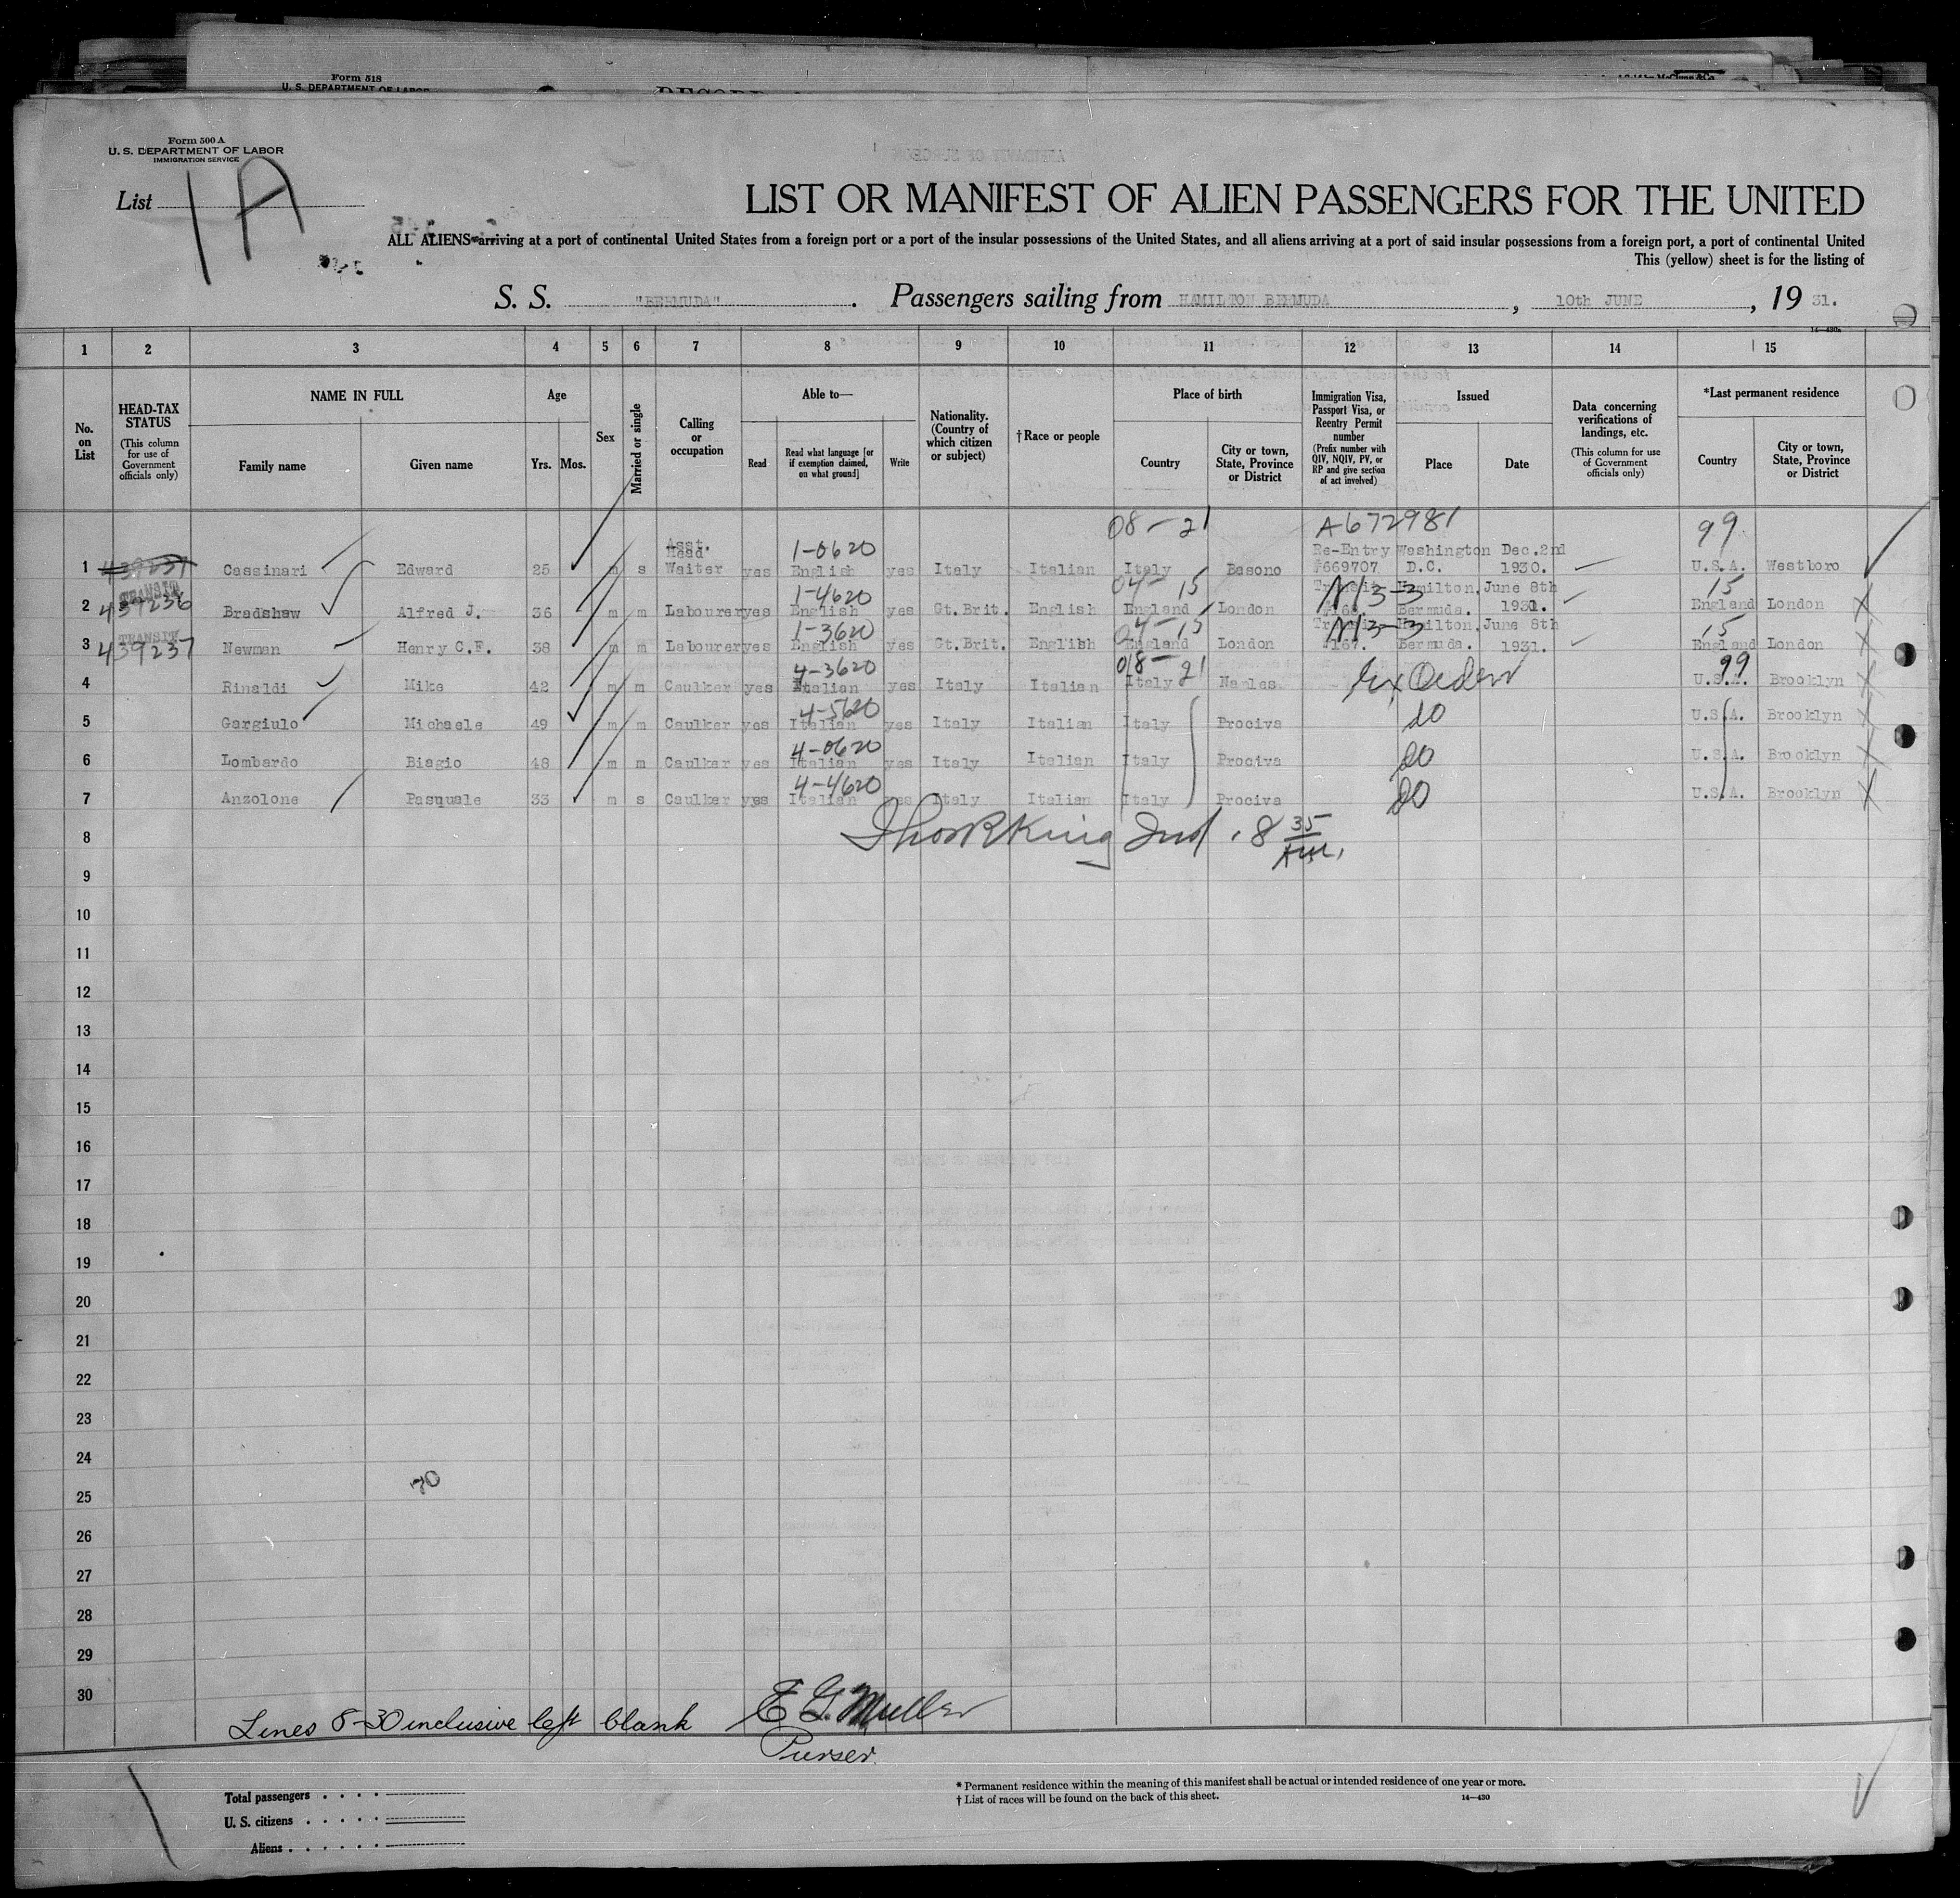 Form 518
U. S. DEPARTMENT OF LABOR
Form 500 A
U. S. DEPARTMENT OF LABOR
IMMIGRATION SERVICE
List 1A
LIST OR MANIFEST OF ALIEN PASSENGERS FOR THE UNITED
ALL ALIENS arriving at a port of continental United States from a foreign port or a port of the insular possessions of the United States, and all aliens arriving at a port of said insular possessions from a foreign port, a port of continental United
This (yellow) sheet is for the listing of
S. S. "BERMUDA". Passengers sailing from HAMILTON BERMUDA, 10th JUNE, 19 31.
14—430a
1 2 3 4 5 6 7 8 9 10 11 12 13 14 15
No. on List
HEAD-TAX STATUS (This column for use of Government officials only)
NAME IN FULL
Family name
Given name
Age
Yrs. Mos.
Sex
Married or single
Calling or occupation
Able to—
Read
Read what language [or if exemption claimed, on what ground]
Write
Nationality. (Country of which citizen or subject)
† Race or people
Place of birth
Country
City or town, State, Province or District
Immigration Visa, Passport Visa, or Reentry Permit number (Prefix number with QIV, NQIV, PV, or RP and give section of act involved)
Issued
Place
Date
Data concerning verifications of landings, etc. (This column for use of Government officials only)
*Last permanent residence
Country
City or town, State, Province or District
08-21 A672981 99
Asst. Head 1-0620 Re-Entry Washington Dec.2nd
1 439237 Cassinari Edward 25 m s Waiter yes English yes Italy Italian Italy Basono #669707 D.C. 1930. U.S.A. Westboro
TRANSIT 1-4620 04-15 Transit Hamilton, June 8th 15
2 439236 Bradshaw Alfred J. 36 m m Labourer yes English yes Gt.Brit. English England London Bermuda. 1931. England London
TRANSIT 1-3620 04-15 Transit Hamilton, June 8th 15
3 439237 Newman Henry C.F. 38 m m Labourer yes English yes Gt.Brit. English England London #167. Bermuda. 1931. England London
4-3620 08-21 99
4 Rinaldi Mike 42 m m Caulker yes Italian yes Italy Italian Italy Naples U.S.A. Brooklyn
4-5620
5 Gargiulo Michaele 49 m m Caulker yes Italian yes Italy Italian Italy Prociva do U.S.A. Brooklyn
4-0620
6 Lombardo Biagio 48 m m Caulker yes Italian yes Italy Italian Italy Prociva do U.S.A. Brooklyn
4-4620
7 Anzolone Pasquale 33 m s Caulker yes Italian yes Italy Italian Italy Prociva do U.S.A. Brooklyn
8 King 8 35 AM.
9
10
11
12
13
14
15
16
17
18
19
20
21
22
23
24
25
26
27
28
29
30
Lines 8-30 inclusive left blank E G. Muller
Purser.
Total passengers
U. S. citizens
Aliens
* Permanent residence within the meaning of this manifest shall be actual or intended residence of one year or more.
† List of races will be found on the back of this sheet.
14—430